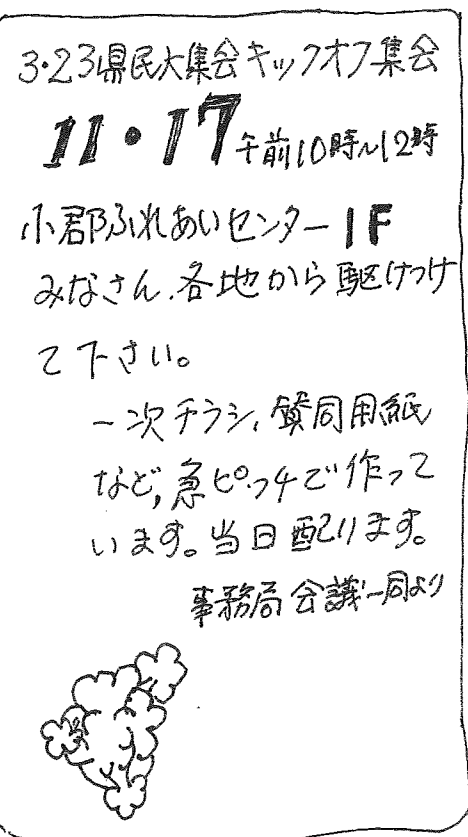 3・23県民大集会キックオフ集会
11・17午前10時~12時
小郡ふれあいセンター1F
みなさん、各地から駆けつけ
て下さい。
一次チラシ、賛同用紙
など、急ピッチで作って
います。当日配ります。
事務局会議一同より